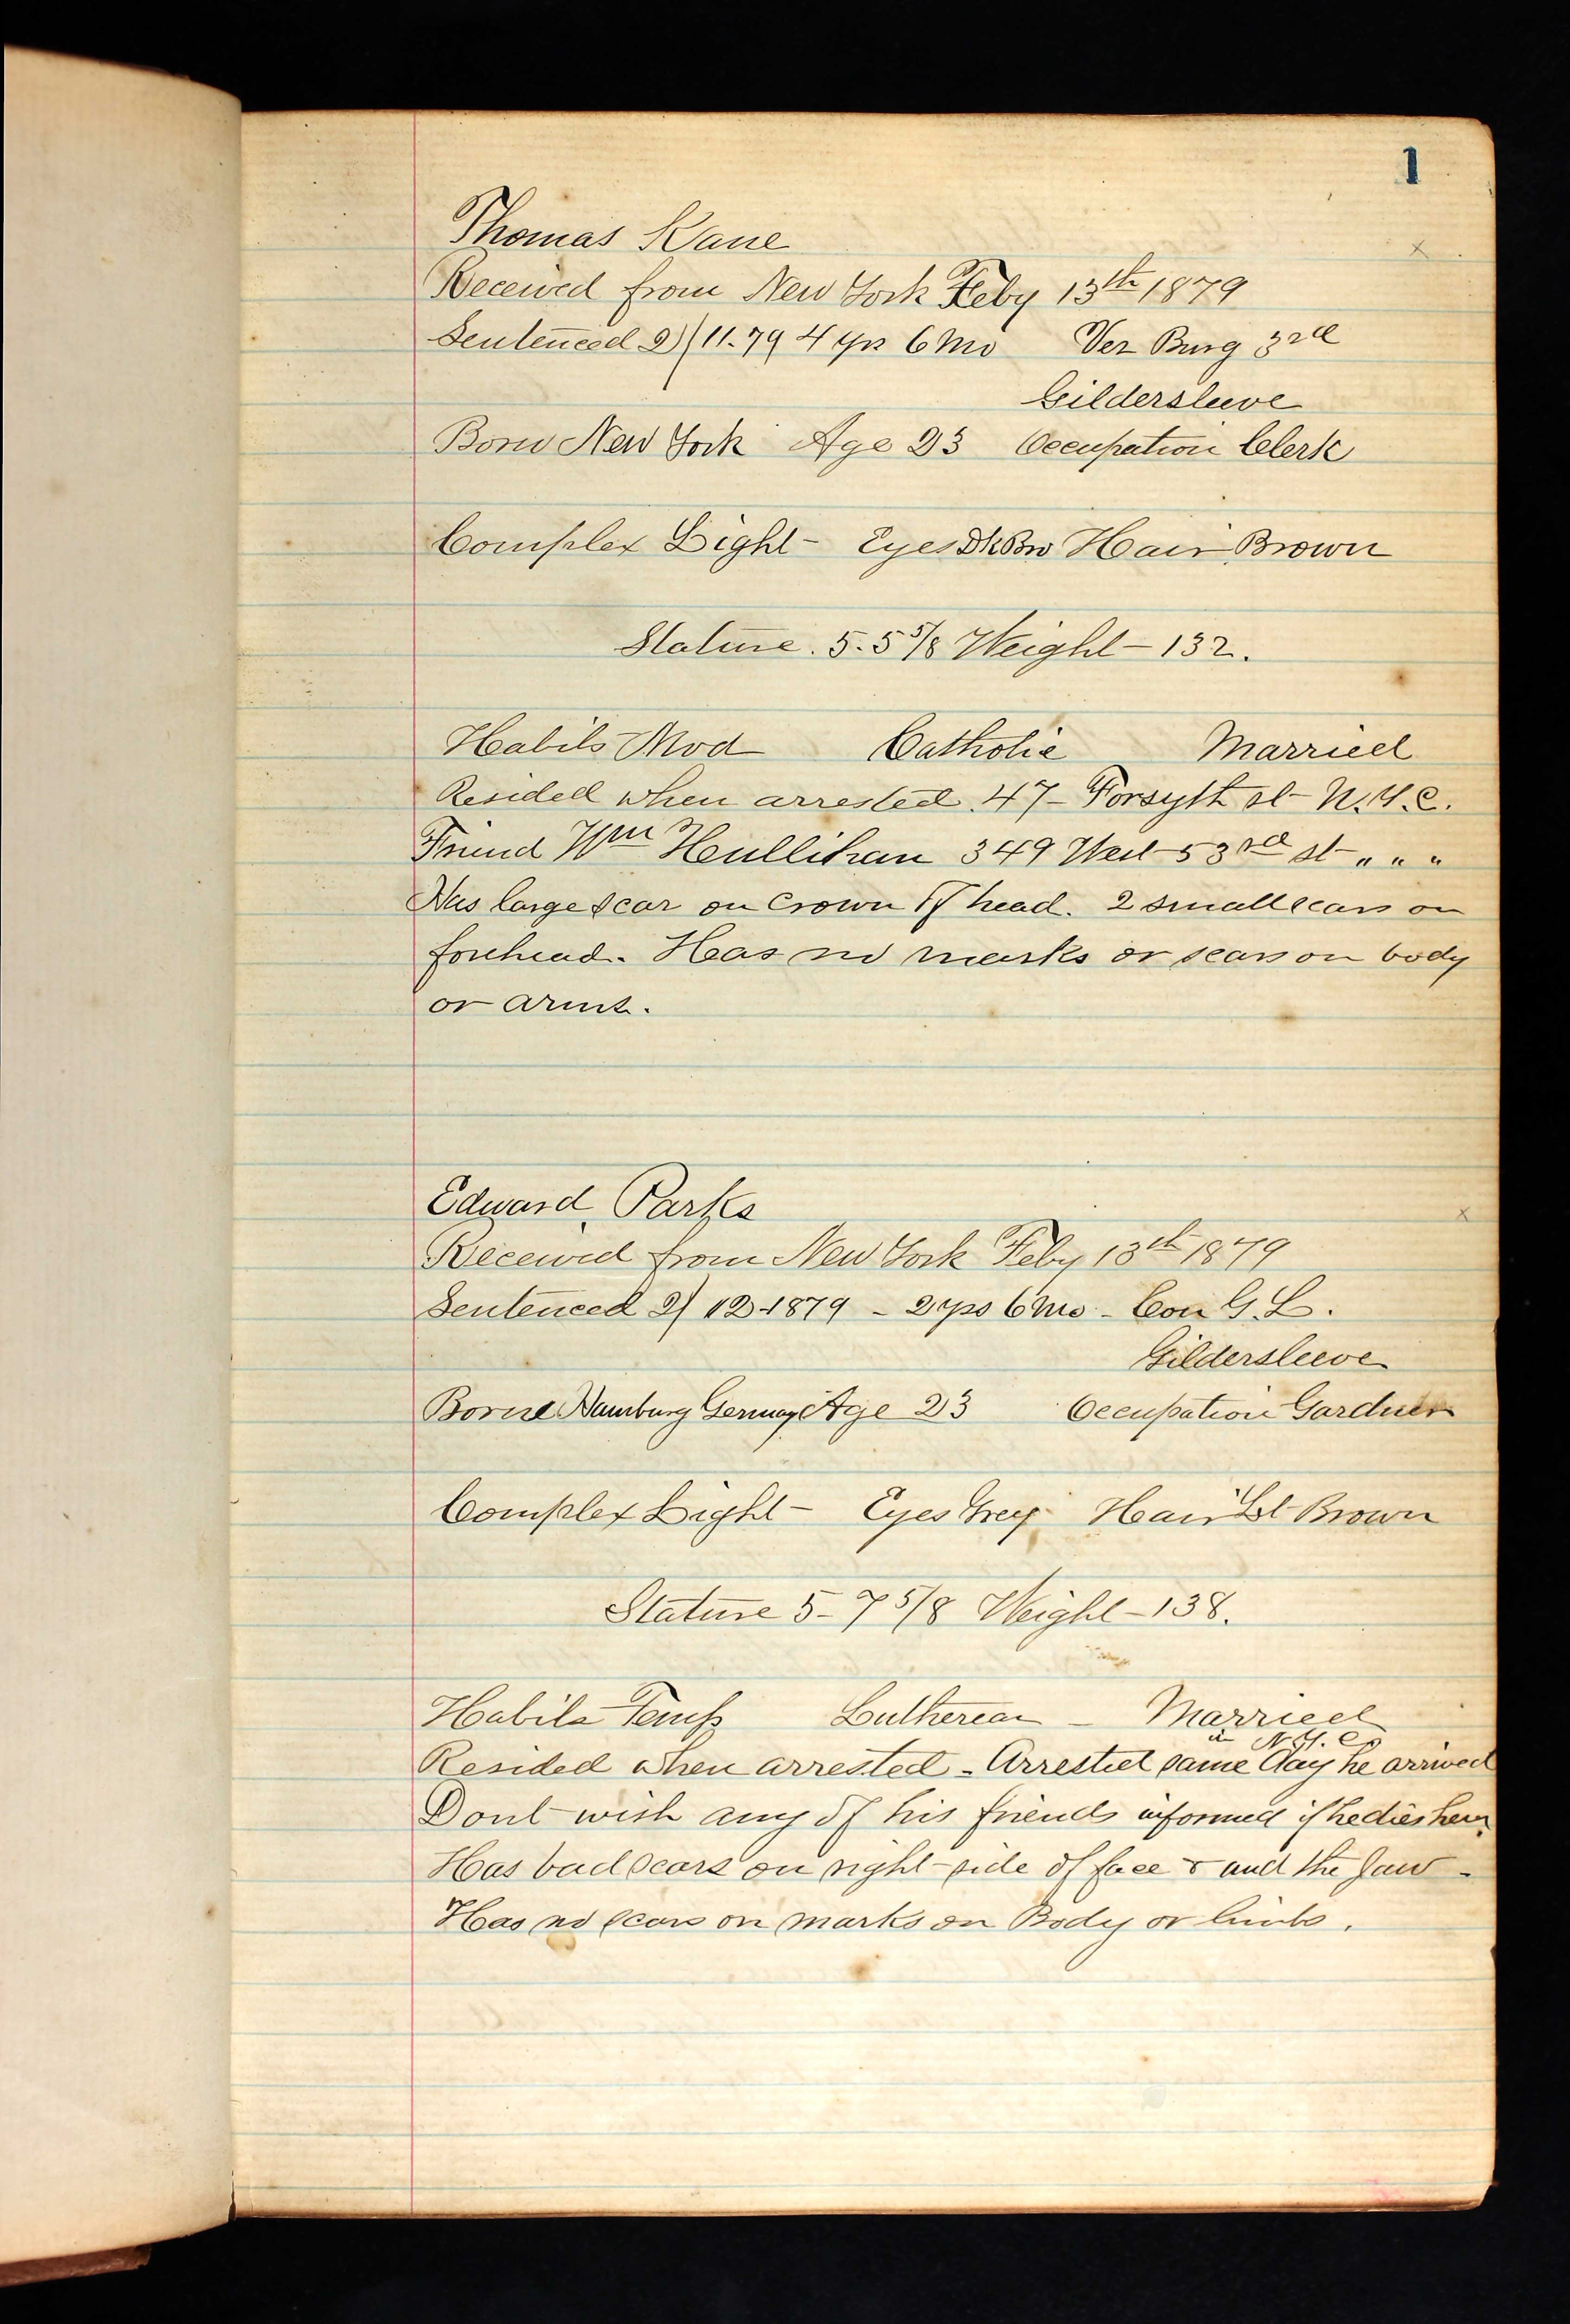 1
Thomas Kane
Received from New York Feby 13th 1879
Sentenced 2/11-79 4 yrs 6 Mo Ver Burg 3rd
Gildersleeve
Born New York Age 23 Occupation Clerk
Complex Light - Eyes Dk Bro Hair Brown
Stature. 5.5 5/8 Weight - 132.
Habits Mod Catholic Married
Resided when arrested. 47 - Forsyth st - N.Y.C.
Friend Wm Hullihan 349 West 53rd st - " " "
Has large scar on Crown of head. 2 small scars on
forehead. Has no marks or scars on body
or arms.
Edward Parks
Received from New York Feby 13th 1879
Sentenced 2/12-1879 - 2 yrs 6 Mo - Con G. L.
Gildersleeve
Borne Hamburg Germay Age 23 Occupation Gardner
Complex Light - Eyes Grey Hair Lt Brown
Stature 5-7 5/8 Weight - 138.
Habits Temp Lutheran - Married
in N.Y.C.
Resided when arrested - Arrested same day he arrived
Dont wish any of his friends informed if he dies here.
Has bad scars on right side of face & and the Jaw -
Has no scars or marks on Body or limbs.